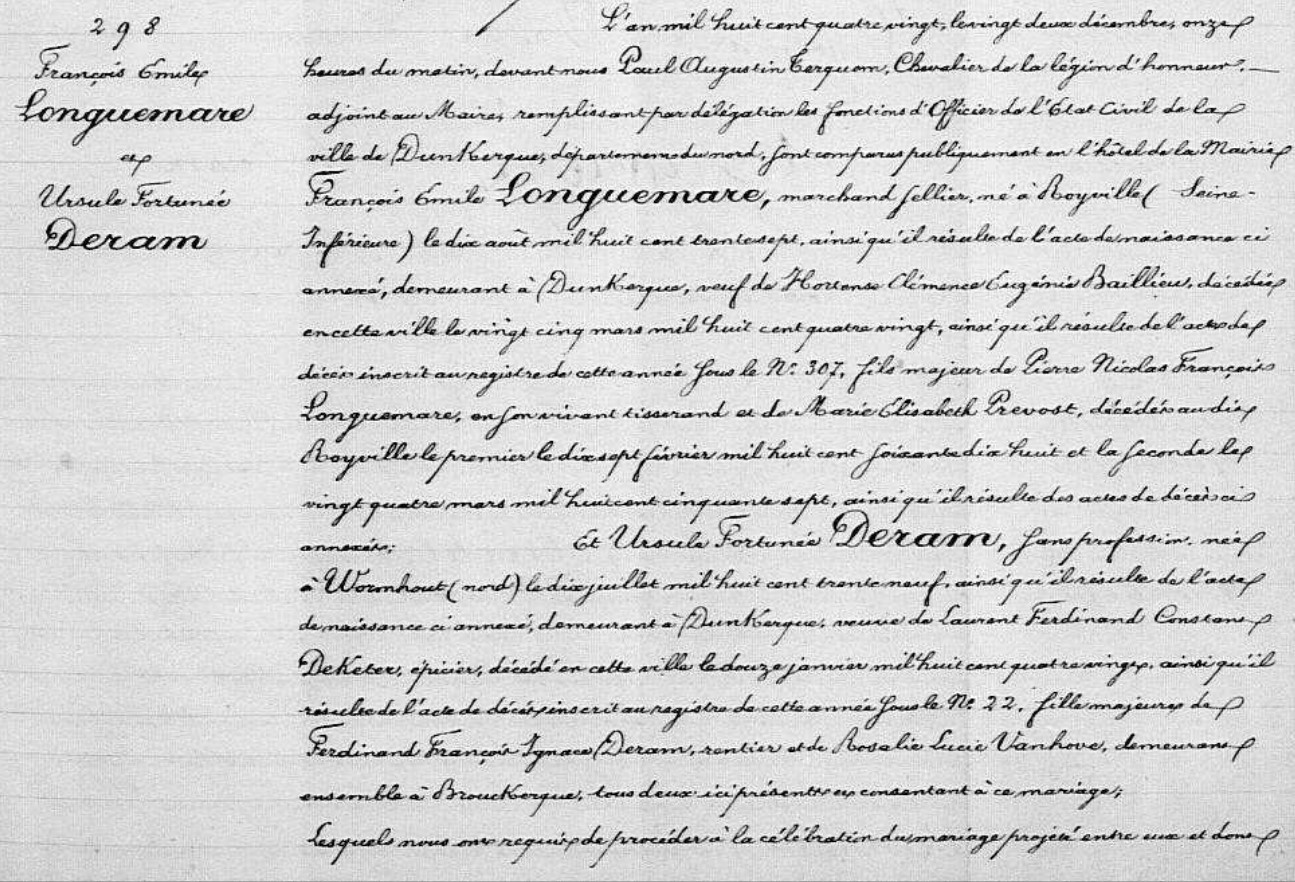 298
François Emile
Longuemare
et
Ursule Fortunée
Deram
L'an mil huit cent quatre vingt, le vingt deux décembre, onze
heures du matin, devant nous Paul Augustin Terquem, Chevalier de la légion d'honneur,
adjoint au Maire, remplissant par délégation les fonctions d'Officier de l'Etat Civil de la
ville de DunKerque, département du nord, sont comparus publiquement en l'hôtel de la Mairie
François Emile Longuemare, marchand sellier, né à Royville ( Seine-
Inférieure ) le dix août mil huit cent trente sept, ainsi qu'il résulte de l'acte de naissance ci
annexé, demeurant à DunKerque, veuf de Hortense Clémence Eugénie Baillieu, décédée
en cette ville le vingt cinq mars mil huit cent quatre vingt, ainsi qu'il résulte de l'acte de
décès inscrit au registre de cette année sous le N° 307, fils majeur de Pierre Nicolas François
Longuemare, en son vivant tisserand et de Marie Elisabeth Prevost, décédés au dit
Royville le premier le dix sept février mil huit cent soixante dix huit et la seconde le
vingt quatre mars mil huit cent cinquante sept, ainsi qu'il résulte des actes de décès ci
annexés; Et Ursule Fortunée Deram, sans profession, née
à Wormhout ( nord ) le dix juillet mil huit cent trente neuf, ainsi qu'il résulte de l'acte
de naissance ci annexé, demeurant à DunKerque, veuve de Laurent Ferdinand Constant
DeKeter, épicier, décédé en cette ville le douze janvier mil huit cent quatre vingt, ainsi qu'il
résulte de l'acte de décès inscrit au registre de cette année sous le N° 22, fille majeure de
Ferdinand François Ignace Deram, rentier et de Rosalie Lucie Vanhove, demeurant
ensemble à BrouckKerque, tous deux ici présents et consentant à ce mariage;
Lesquels nous ont requis de procéder à la célébration du mariage projeté entre eux et dont